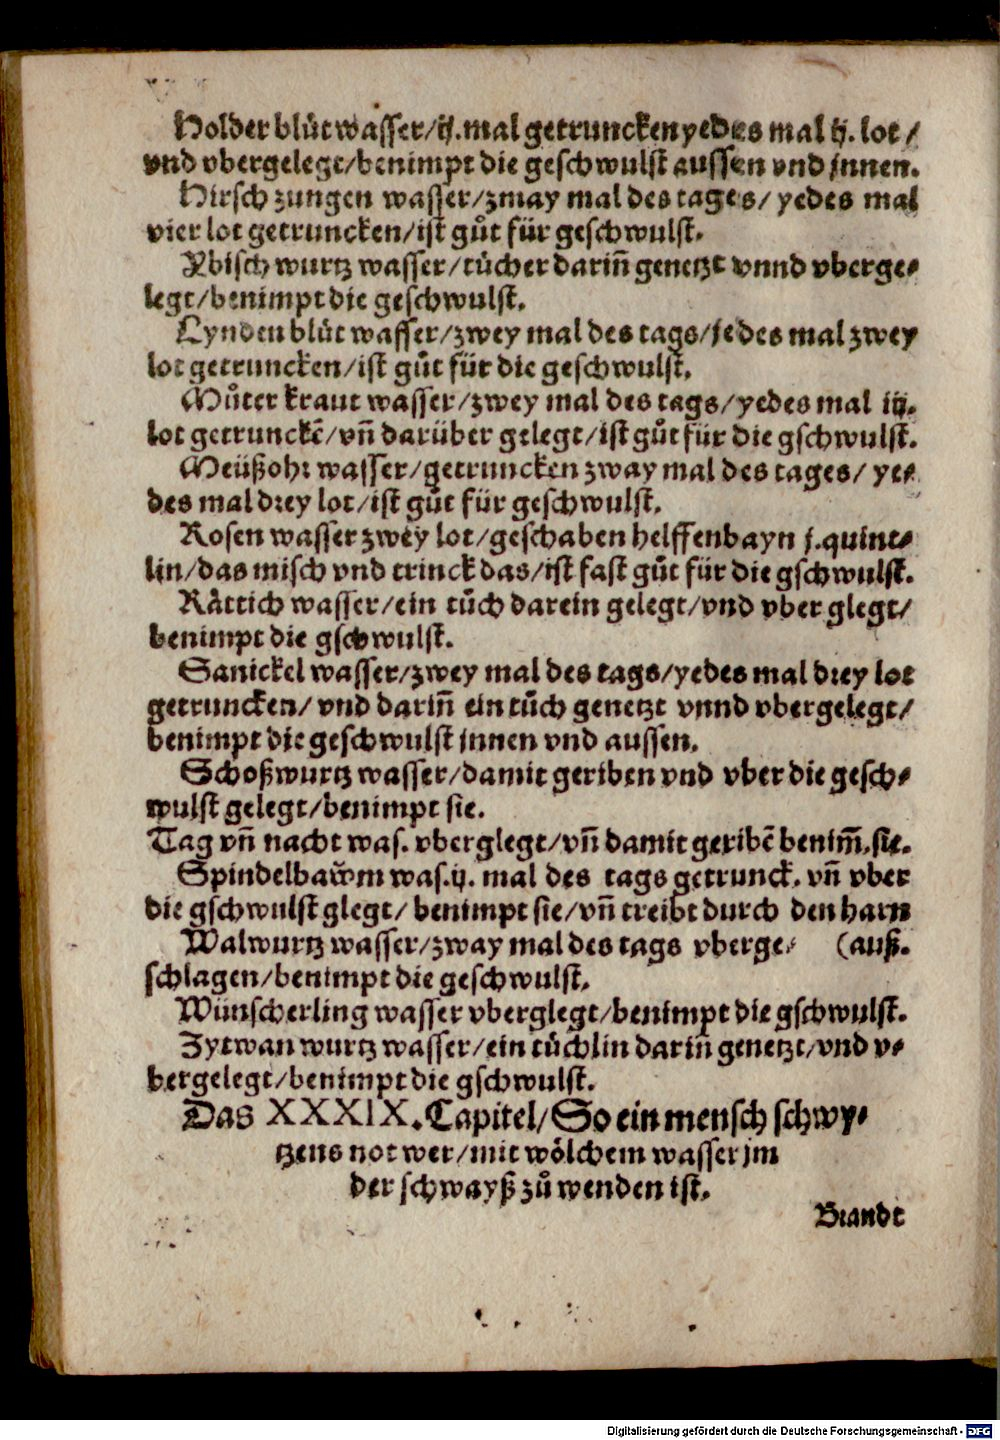 Holder blůt wasser/ij.mal getruncken yedes mal ij. lot/
vnd vbergelegt/benimpt die geschwulst aussen vnd jnnen.
Hirsch zungen wasser/zmay mal des tages/ yedes mal
vier lot getruncken/ist gůt für geschwulst.
Ybisch wurtz wasser/tůcher dariñ genetzt vnnd vberge⸗
legt/benimpt die geschwulst.
Lynden blůt wasser/zwey mal des tags/jedes mal zwey
lot getruncken/ist gůt für die geschwulst.
Můter kraut wasser/zwey mal des tags/yedes mal iij.
lot getrunckẽ/vñ darüber gelegt/ist gůt für die gschwulst.
Meüßohr wasser/getruncken zway mal des tages/ ye⸗
des mal drey lot/ist gůt für geschwulst.
Rosen wasser zwey lot/geschaben helffenbayn j.quint⸗
lin/das misch vnd trinck das/ist fast gůt für die gschwulst.
Råttich wasser/ein tůch darein gelegt/vnd vber glegt/
benimpt die gschwulst.
Sanickel wasser/zwey mal des tags/yedes mal drey lot
getruncken/ vnd dariñ ein tůch genetzt vnnd vbergelegt/
benimpt die geschwulst jnnen vnd aussen.
Schoßwurtz wasser/damit geriben vnd vber die gesch⸗
wulst gelegt/benimpt sie.
Tag vñ nacht was. vberglegt/vñ damit geribẽ benim̃.sie.
Spindelbaům was.ij. mal des tags getrunck. vñ vber
die gschwulst glegt/ benimpt sie/vñ treibt durch den harn
Walwurtz wasser/zway mal des tags vberge⸗ (auß.
schlagen/benimpt die geschwulst.
Wünscherling wasser vberglegt/benimpt die gschwulst.
Zytwan wurtz wasser/ein tůchlin dariñ genetzt/vnd v⸗
bergelegt/benimpt die gschwulst.
Das XXXIX.Capitel/So ein mensch schwy⸗
tzens not wer/mit wölchem wasser jm
der schwayß zů wenden ist.
Brandt
Digitalisierung gefördert durch die Deutsche Forschungsgemeinschaft - DFG